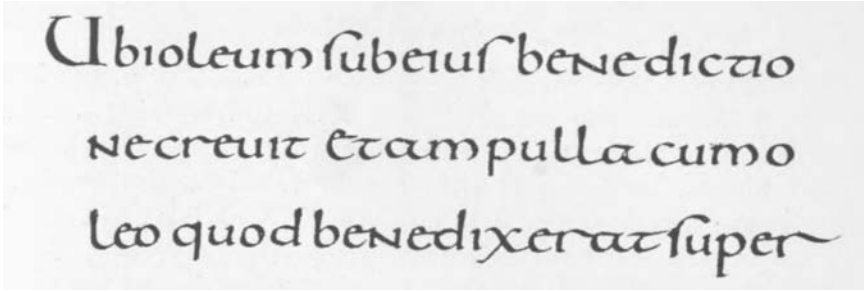 Ubioleum ſubeiuſ benedictio
necreuit etampulla cumo
leo quod benedixerat ſuper